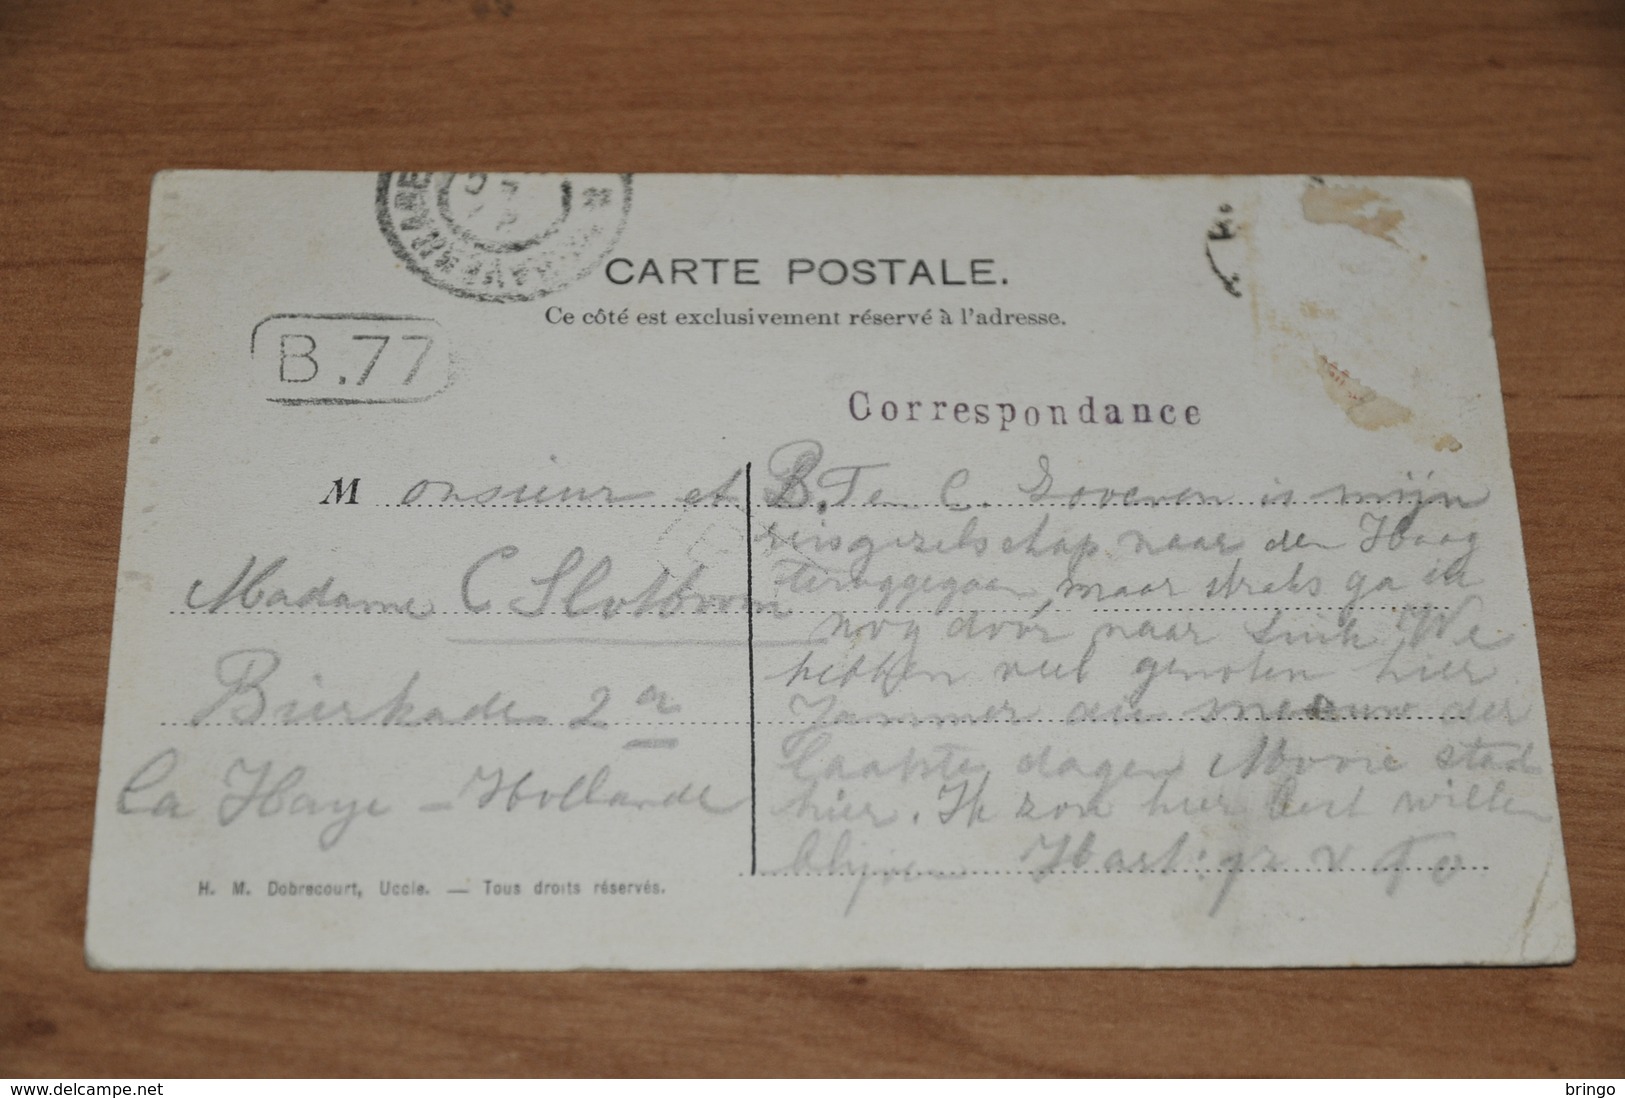 CARTE POSTALE.
Ce côté est exclusivement réservé à l'adresse.
B.77
Correspondance
Monsieur et
Madame C Slotboom
Bierkade 2a
La Haye - Hollande
B. Te C. is mijn
reisgezelschap naar den Haag
teruggegaan, maar straks ga ik
nog door naar Luik We
hebben veel genoten hier
Jammer der
laatste dagen Mooie stad
hier. Ik zou hier best willen
blijven Hart: gr v
H. M. Dobrecourt, Uccle. — Tous droits réservés.
delcampe.net
bringo